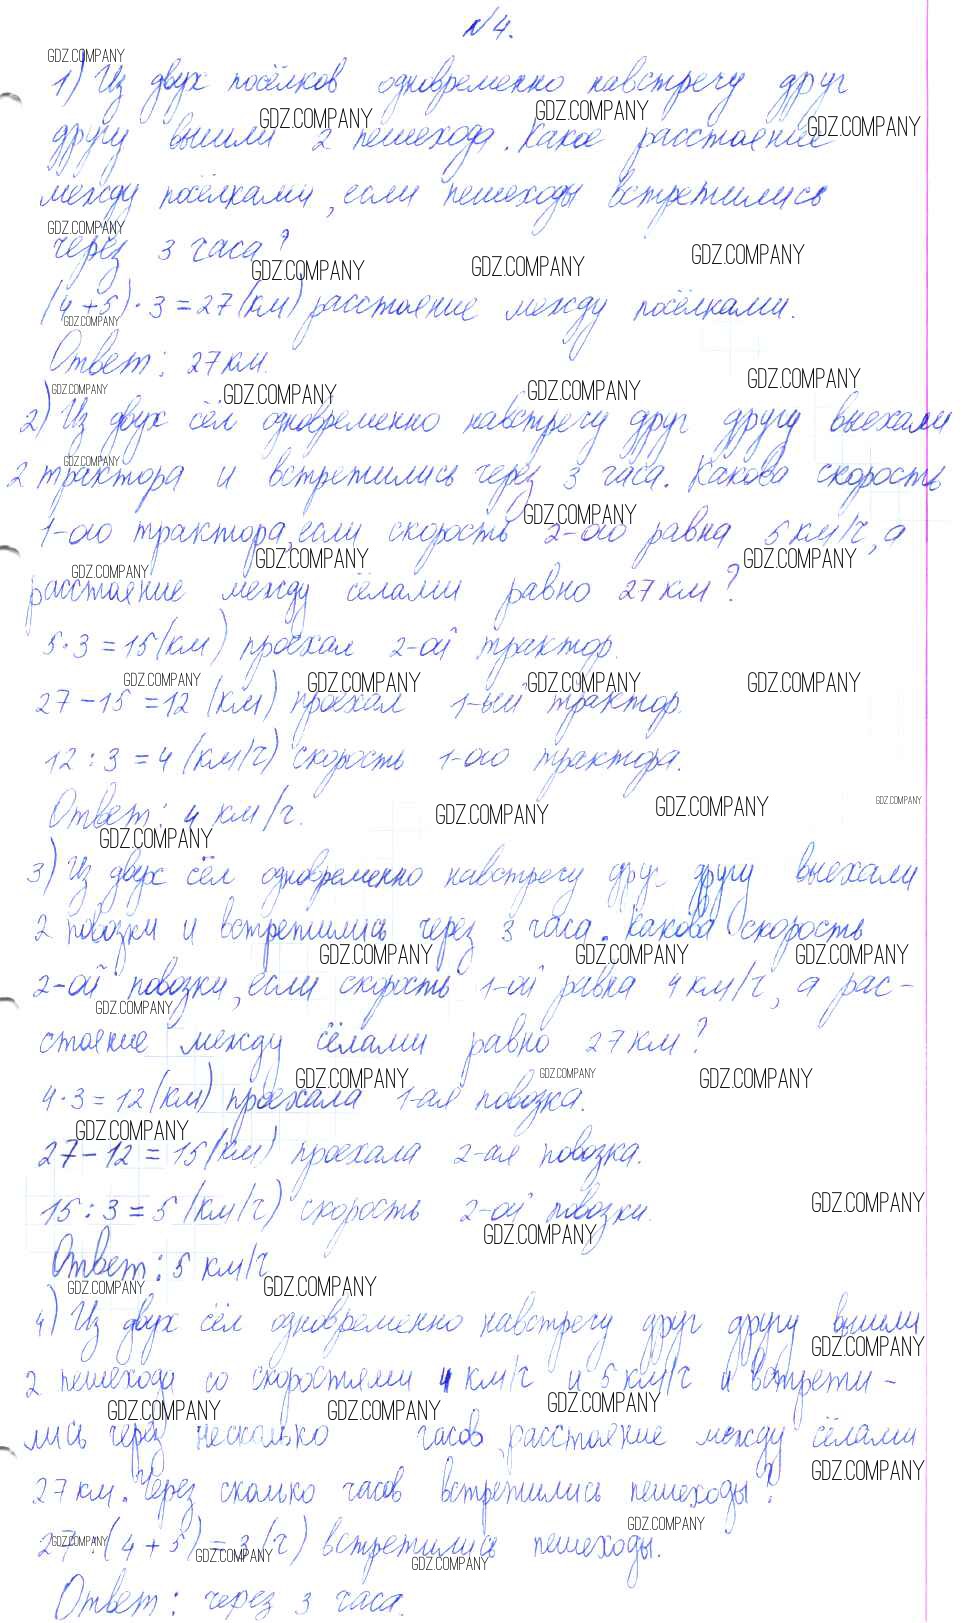 №4.
1) Из двух посёлков одновременно навстречу друг
другу вышли 2 пешехода. Какое расстояние
между посёлками, если пешеходы встретились
через 3 часа?
(4+5)·3=27(км) расстояние между посёлками.
Ответ: 27 км.
2) Из двух сёл одновременно навстречу друг другу выехали
2 трактора и встретились через 3 часа. Какова скорость
1-ого трактора, если скорость 2-ого равна 5 км/ч, а
расстояние между сёлами равно 27 км?
5·3=15(км) проехал 2-ой трактор.
27-15=12 (км) проехал 1-ый трактор.
12:3=4 (км/ч) скорость 1-ого трактора.
Ответ: 4 км/ч.
3) Из двух сёл одновременно навстречу друг другу выехали
2 повозки и встретились через 3 часа. Какова скорость
2-ой повозки, если скорость 1-ой равна 4 км/ч, а рас-
стояние между сёлами равно 27 км?
4·3=12(км) проехала 1-ая повозка.
27-12=15(км) проехала 2-ая повозка.
15:3=5 (км/ч) скорость 2-ой повозки.
Ответ: 5 км/ч
4) Из двух сёл одновременно навстречу друг другу вышли
2 пешехода со скоростями 4 км/ч и 5 км/ч и встрети-
лись через несколько часов, расстояние между сёлами
27 км. Через сколько часов встретились пешеходы?
27:(4+5)=3(ч) встретились пешеходы.
Ответ: через 3 часа.
GDZ.COMPANY